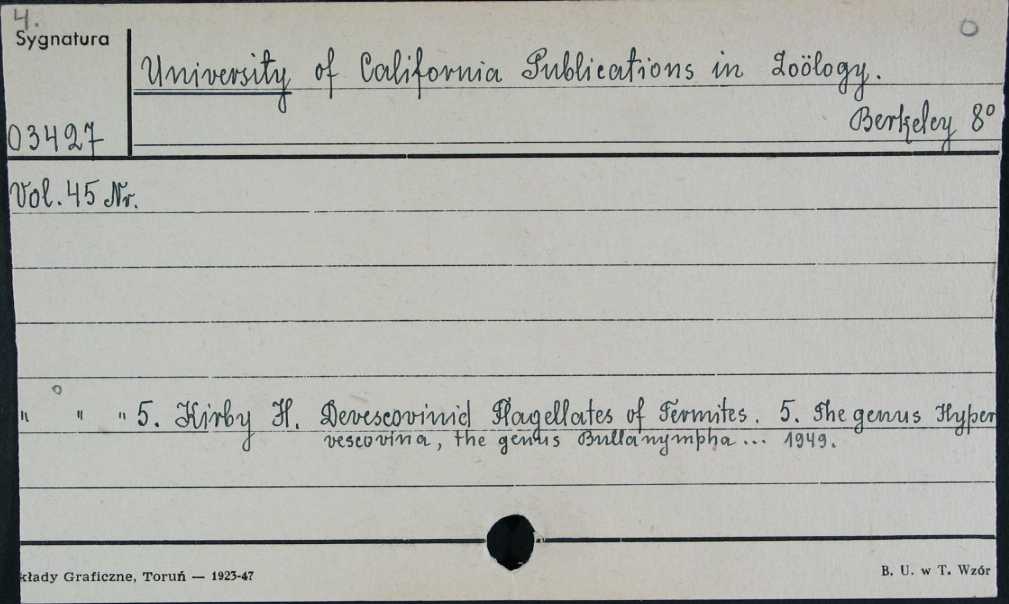 4.
Sygnatura
University of California Publications in Zoölogy.
Berkeley 8°
03427
Vol. 45 Nr.
" " " 5. Kirby H. Devescovinid Flagellates of Termites. 5. The genus Hyper
vescovina, the genus Bullanympha ... 1949.
kłady Graficzne, Toruń — 1923-47
B. U. w T. Wzór